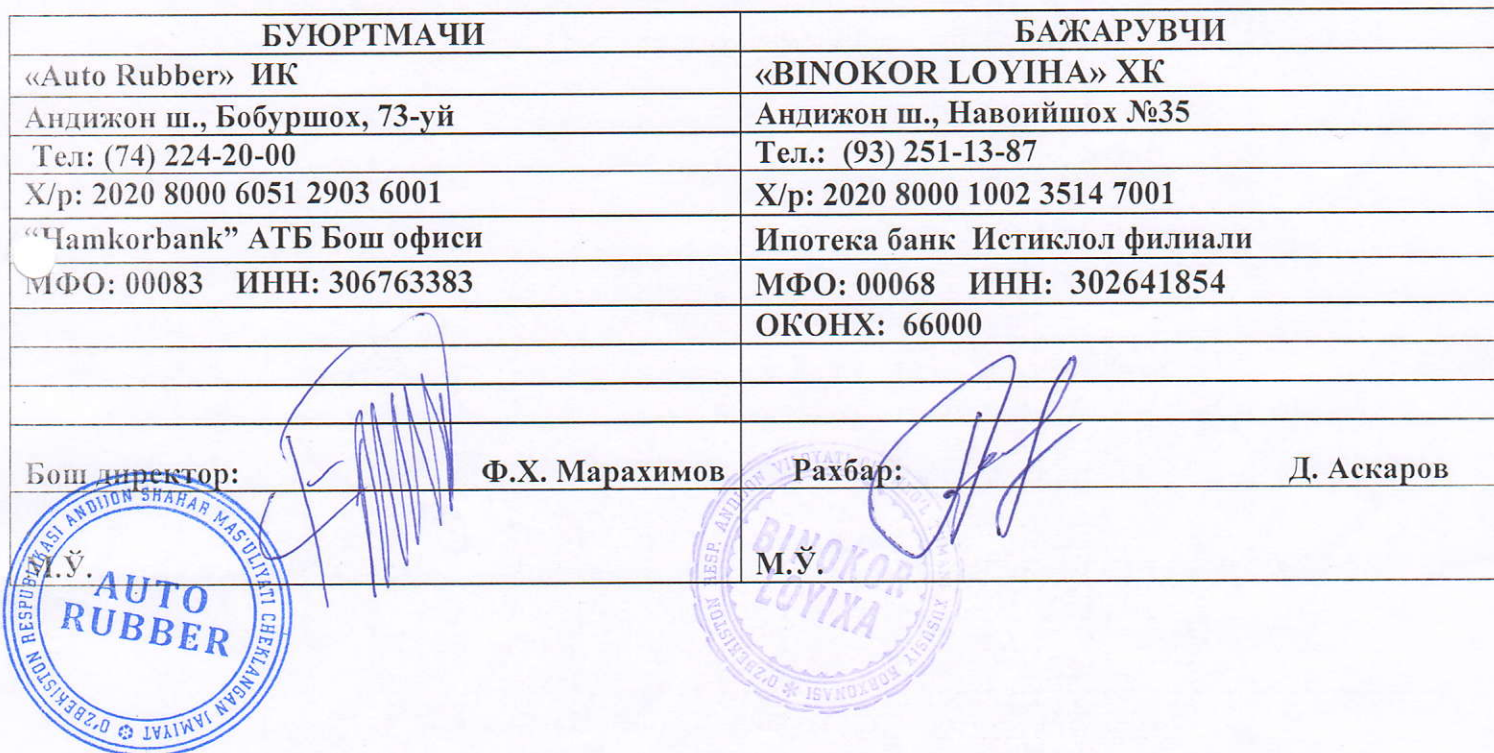 БУЮРТМАЧИ
БАЖАРУВЧИ
«Auto Rubber» ИК
«BINOKOR LOYIHA» ХК
Андижон ш., Бобуршох, 73-уй
Андижон ш., Навоийшох №35
Тел: (74) 224-20-00
Тел.: (93) 251-13-87
Х/р: 2020 8000 6051 2903 6001
Х/р: 2020 8000 1002 3514 7001
“Hamkorbank” АТБ Бош офиси
Ипотека банк Истиклол филиали
МФО: 00083 ИНН: 306763383
МФО: 00068 ИНН: 302641854
ОКОНХ: 66000
Бош директор: Ф.Х. Марахимов
Рахбар: Д. Аскаров
М.Ў.
М.Ў.
O'ZBEKISTON RESPUBLIKASI ANDIJON SHAHAR MAS'ULIYATI CHEKLANGAN JAMIYAT
AUTO
RUBBER
O'ZBEKISTON RESP. ANDIJON VILOYATI
XUSUSIY KORXONASI
BINOKOR
LOYIXA